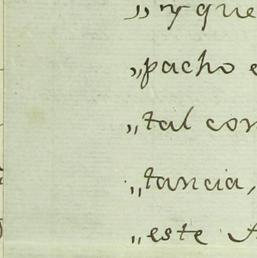 „y que
„pacho e
„tal con
„tancia,
„este